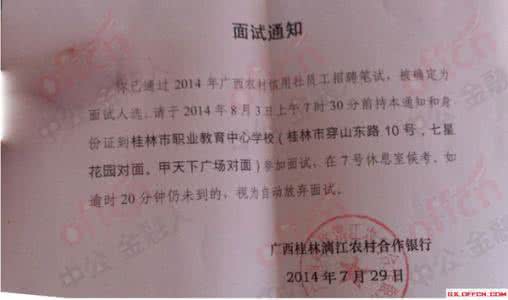 面试通知
你已通过 2014 年广西农村信用社员工招聘笔试，被确定为
面试人选。请于 2014 年 8 月 3 日上午 7 时 30 分前持本通知和身
份证到桂林市职业教育中心学校（桂林市穿山东路 10 号，七星
花园对面、甲天下广场对面）参加面试，在 7 号休息室候考，如
逾时 20 分钟仍未到的，视为自动放弃面试。
广西桂林漓江农村合作银行
2014 年 7 月 29 日
offcn
中公·金融人
GX.OFFCN.COM